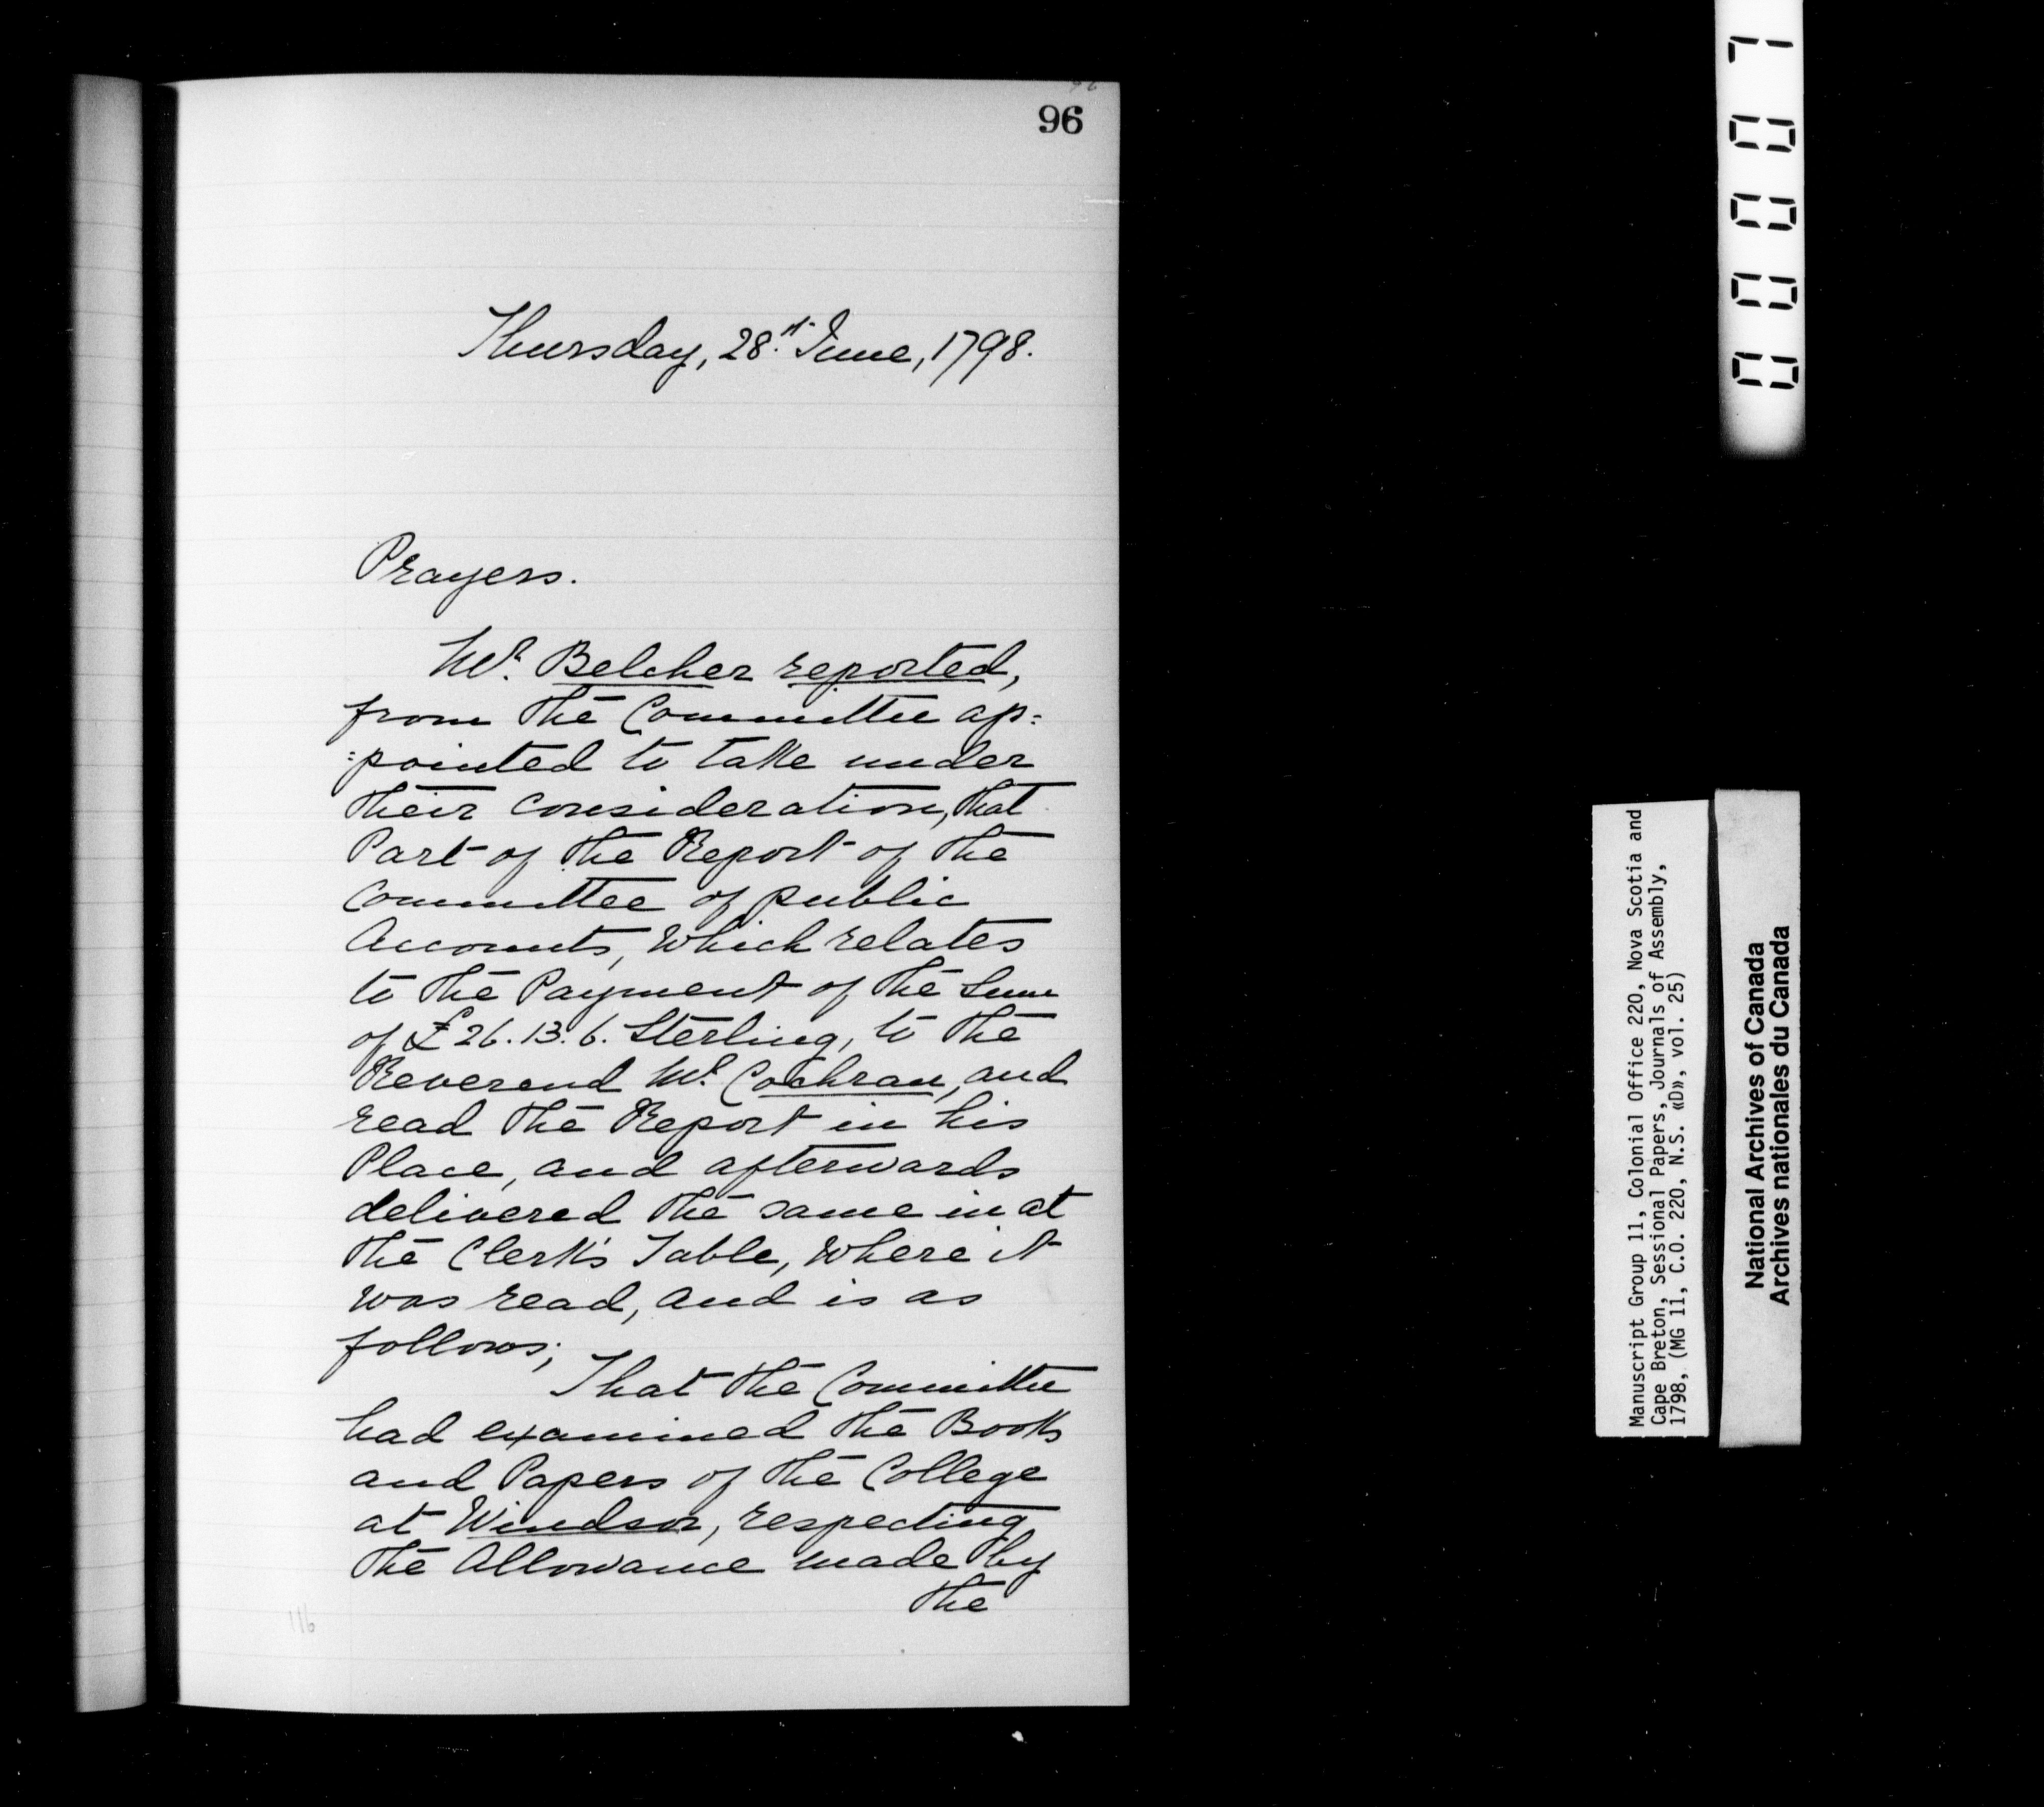 96
Thursday, 28.th June, 1798.
Prayers.
Mr. Belcher reported,
from the Committee ap:
:pointed to take under
their consideration, that
Part of the Report of the
Committee of public
Accounts, which relates
to the Payment of the Sum
of £26.13.6. Sterling, to the
Reverend Mr. Cochran, and
read the Report in his
Place, and afterwards
delivered the same in at
the Clerk's Table, where it
was read, and is as
follows;
That the Committee
had examined the Books
and Papers of the College
at Windsor, respecting
the Allowance made by
the
116
00001
Manuscript Group 11, Colonial Office 220, Nova Scotia and
Cape Breton, Sessional Papers, Journals of Assembly,
1798, (MG 11, C.O. 220, N.S. «D», vol. 25)
National Archives of Canada
Archives nationales du Canada